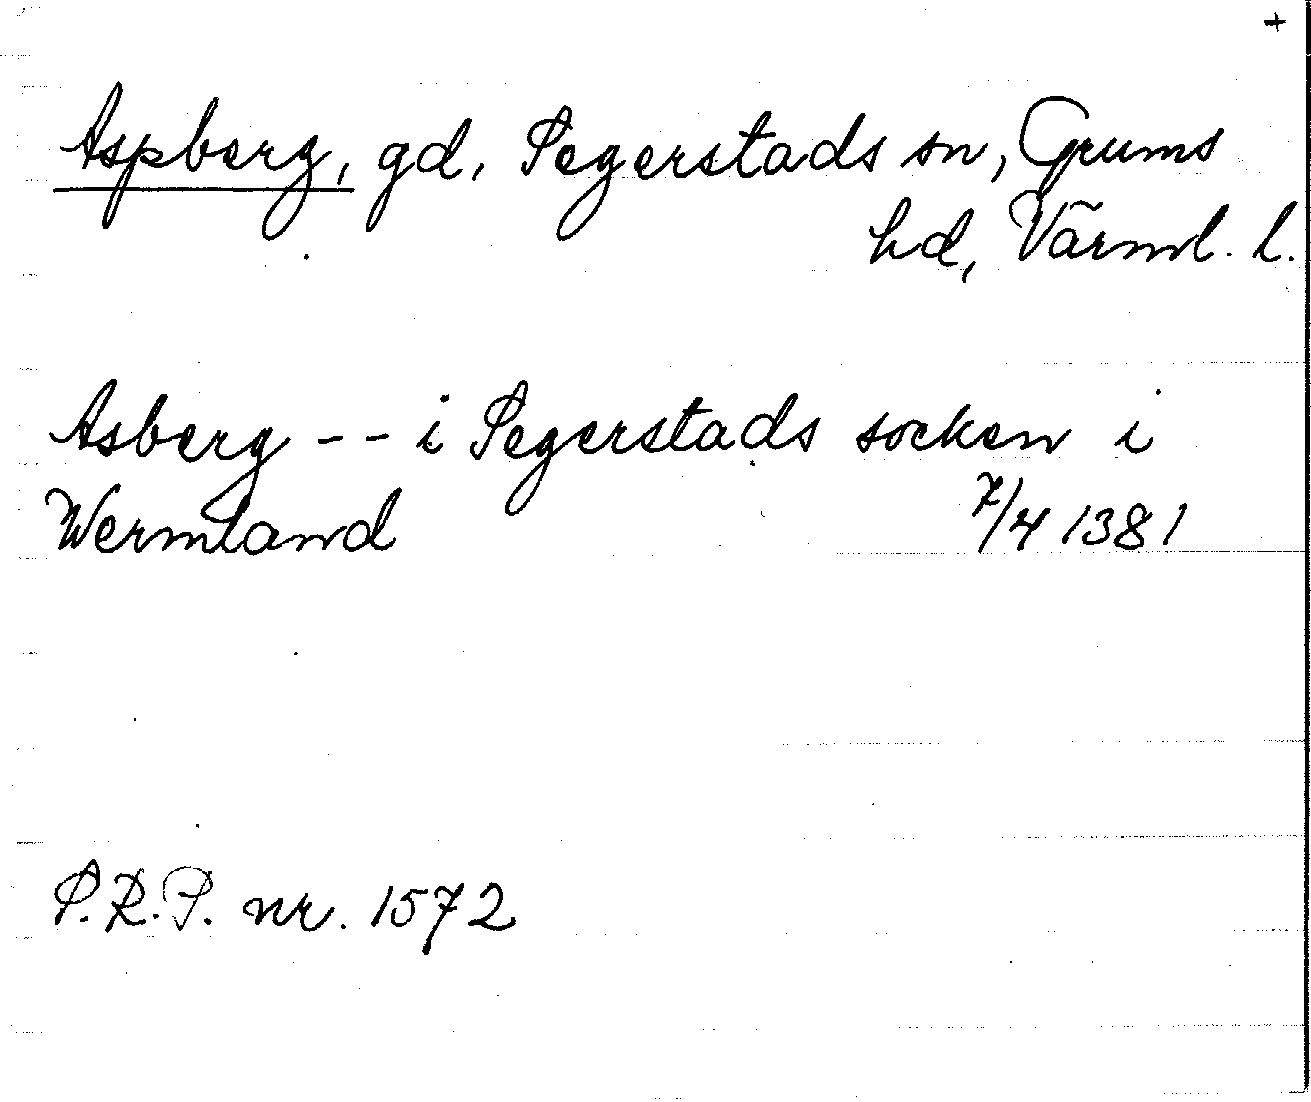 +
Aspberg, gd, Segerstads sn, Grums
hd, Värml. l.
Asberg -- i Segerstads socken i
Wermland 7/4 1381
S.R.P. nr. 1572